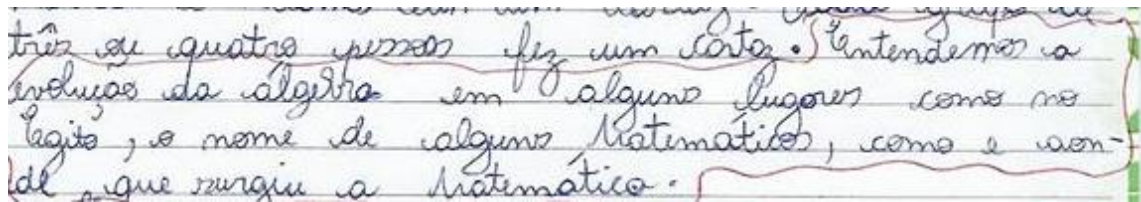 três ou quatro pessoas fez um cartaz. Entendemos a
evolução da álgebra em alguns lugares como no
Egito, o nome de alguns Matemáticos, como e aon-
de que surgiu a Matemática.